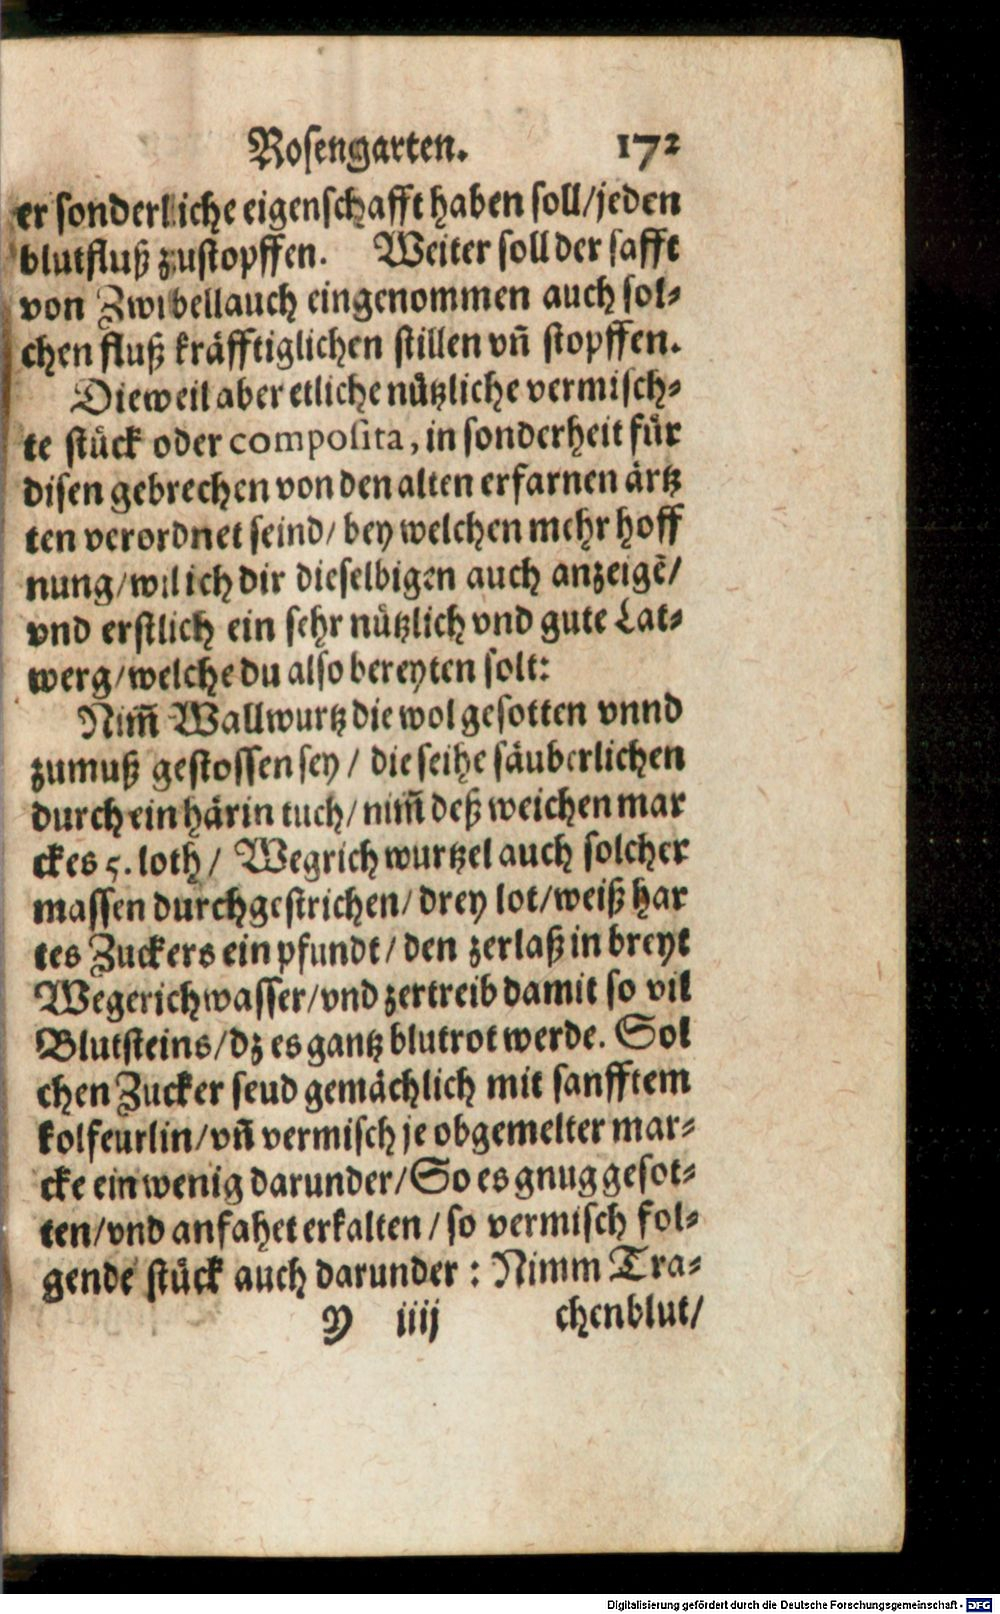 Rosengarten. 172
er sonderliche eigenschafft haben soll/jeden
blutfluß zustopffen. Weiter soll der safft
von Zwibellauch eingenommen auch sol⸗
chen fluß kräfftiglichen stillen vñ stopffen.
Dieweil aber etliche nützliche vermisch⸗
te stück oder composita, in sonderheit für
disen gebrechen von den alten erfarnen ärtz
ten verordnet seind/ bey welchen mehr hoff
nung/wil ich dir dieselbigen auch anzeigẽ/
vnd erstlich ein sehr nützlich vnd gute Lat⸗
werg/welche du also bereyten solt:
Nim̃ Wallwurtz die wol gesotten vnnd
zumuß gestossen sey/ die seihe säuberlichen
durch ein härin tuch/ nim̃ deß weichen mar
ckes 5. loth/ Wegrich wurtzel auch solcher
massen durchgestrichen/ drey lot/weiß har
tes Zuckers ein pfundt/ den zerlaß in breyt
Wegerichwasser/vnd zertreib damit so vil
Blutsteins/dz es gantz blutrot werde. Sol
chen Zucker seud gemächlich mit sanfftem
kolfeurlin/vñ vermisch je obgemelter mar⸗
cke ein wenig darunder/So es gnug gesot⸗
ten/vnd anfahet erkalten/ so vermisch fol⸗
gende stück auch darunder: Nimm Tra⸗
y iiij chenblut/
Digitalisierung gefördert durch die Deutsche Forschungsgemeinschaft - DFG